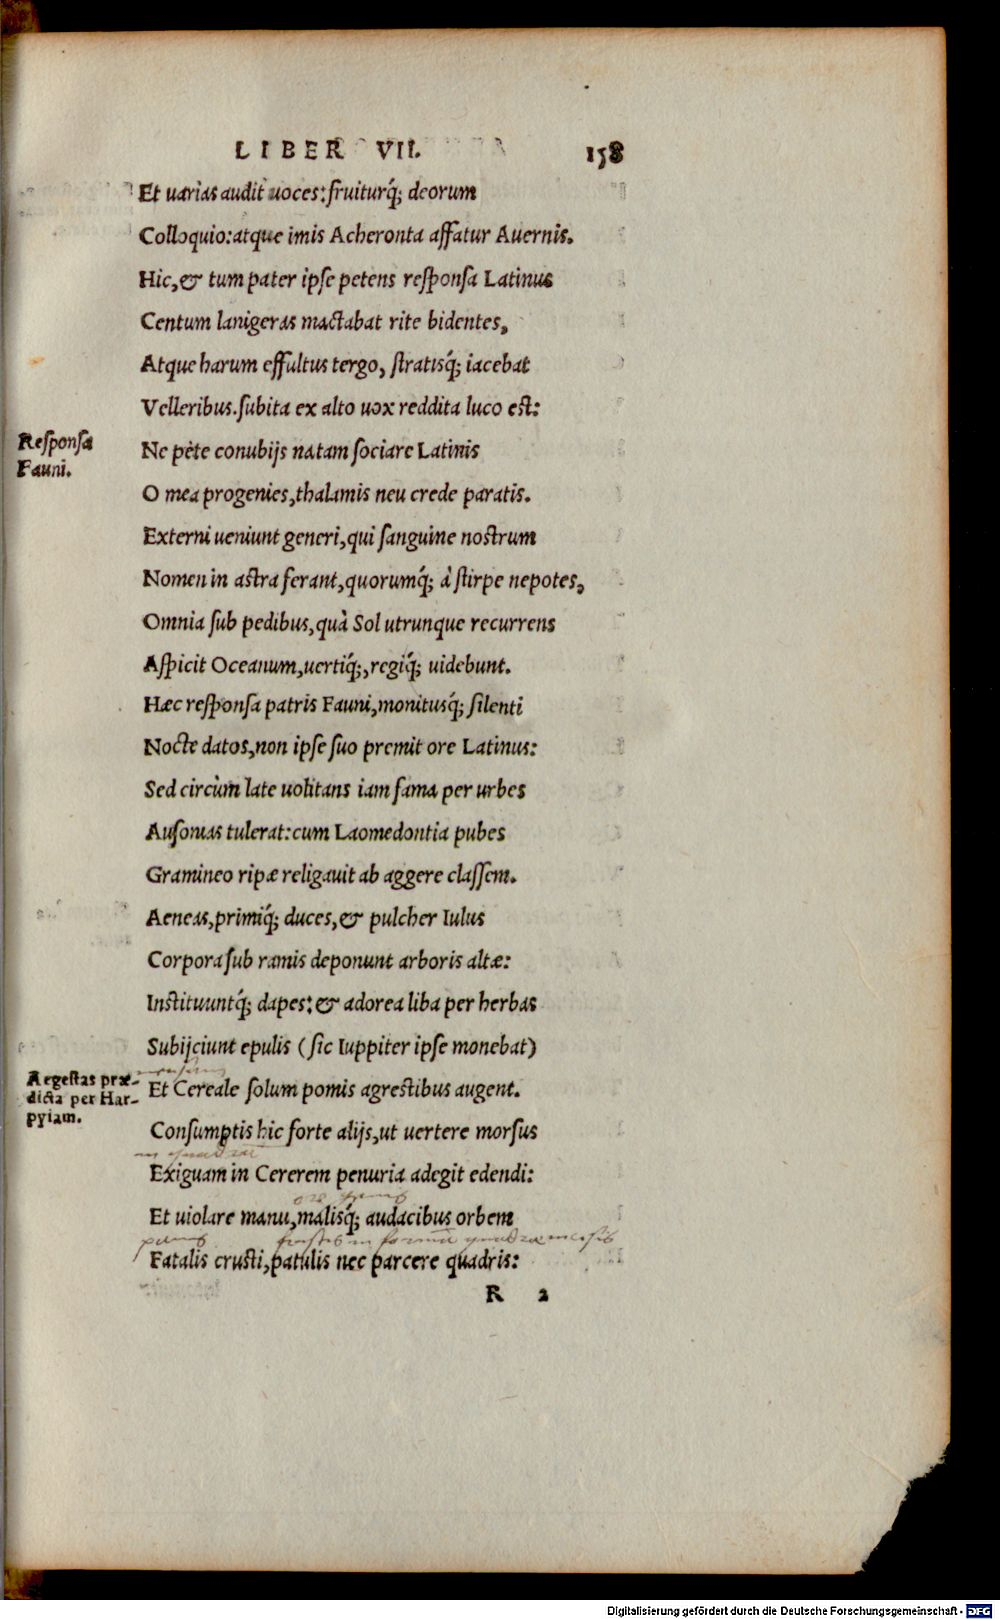 LIBER VII. 158
Et uarias audit uoces: fruiturq́; deorum
Colloquio: atque imis Acheronta affatur Auernis.
Hic, & tum pater ipse petens responsa Latinus
Centum lanigeras mactabat rite bidentes,
Atque harum effultus tergo, stratisq́; iacebat
Velleribus. subita ex alto uox reddita luco est:
Responsa
Fauni.
Ne pète conubijs natam sociare Latinis
O mea progenies, thalamis neu crede paratis.
Externi ueniunt generi, qui sanguine nostrum
Nomen in astra ferant, quorumq́; à stirpe nepotes,
Omnia sub pedibus, quà Sol utrunque recurrens
Aspicit Oceanum, uertiq́;, regiq́; uidebunt.
Hæc responsa patris Fauni, monitusq́; silenti
Nocte datos, non ipse suo premit ore Latinus:
Sed circùm late uolitans iam fama per urbes
Ausonias tulerat: cum Laomedontia pubes
Gramineo ripæ religauit ab aggere classem.
Aeneas, primiq́; duces, & pulcher Iulus
Corpora sub ramis deponunt arboris altæ:
Instituuntq́; dapes: & adorea liba per herbas
Subijciunt epulis (sic Iuppiter ipse monebat)
Aegestas præ-
dicta per Har-
pyiam.
Et Cereale solum pomis agrestibus augent.
Consumptis hic forte alijs, ut uertere morsus
Exiguam in Cererem penuria adegit edendi:
Et uiolare manu, malisq́; audacibus orbem
panis in quadrae incisis
Fatalis crusti, patulis nec parcere quadris:
R 2
Digitalisierung gefördert durch die Deutsche Forschungsgemeinschaft - DFG